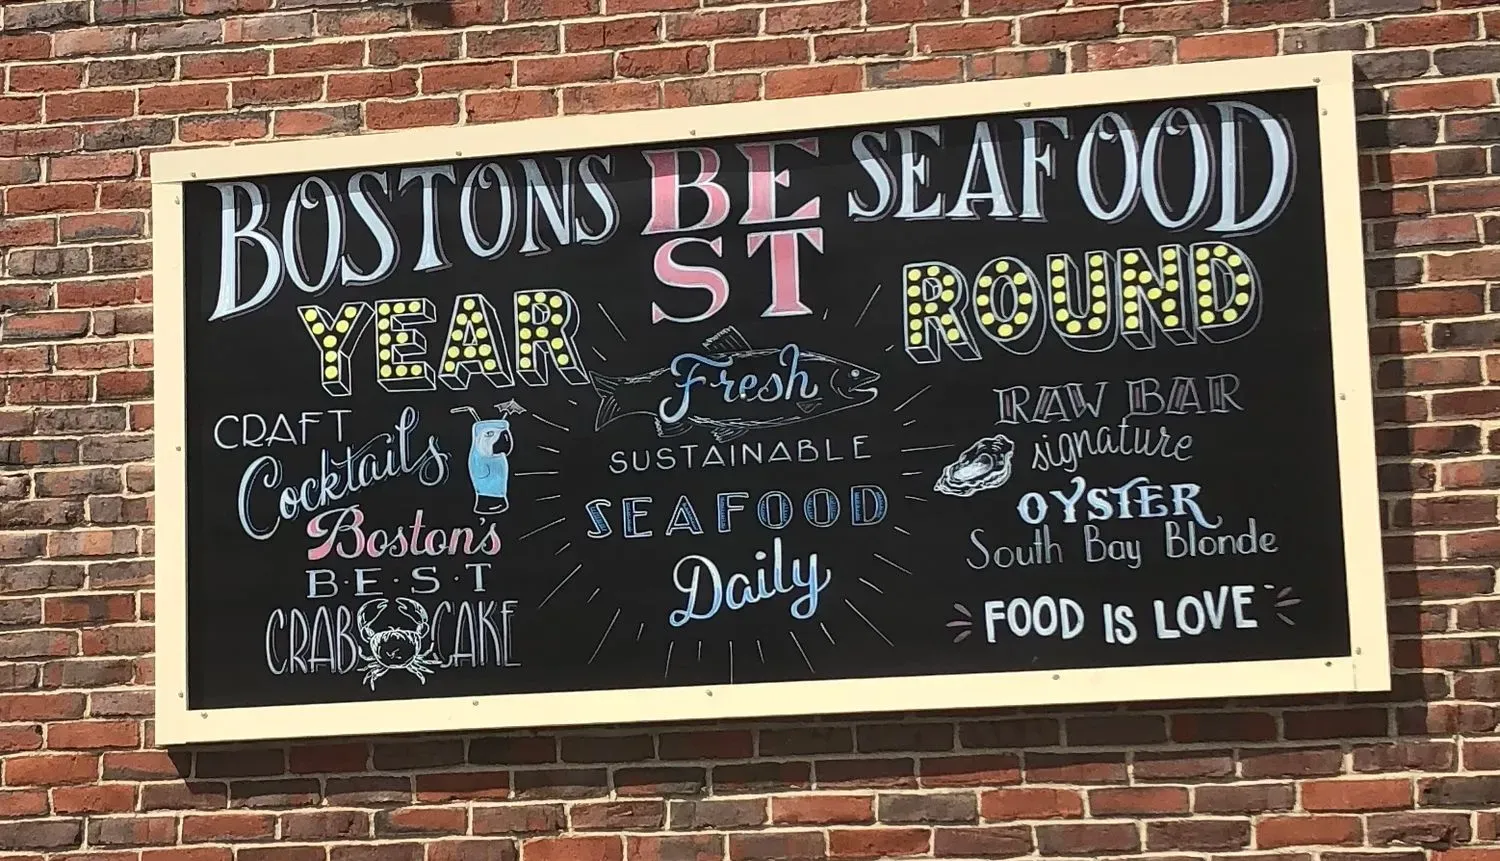 BOSTONS BEST SEAFOOD
YEAR ROUND
CRAFT
Cocktails
Boston's
B·E·S·T
CRAB CAKE
Fresh
SUSTAINABLE
SEAFOOD
Daily
RAW BAR
signature
OYSTER
South Bay Blonde
FOOD IS LOVE